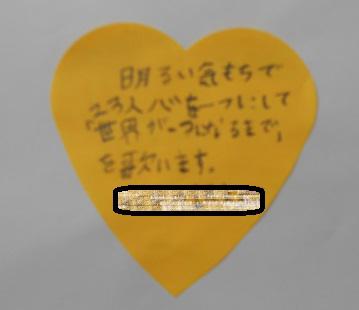 明るい気もちで
23人心を一つにして
「世界が一つになるまで」
を歌います。